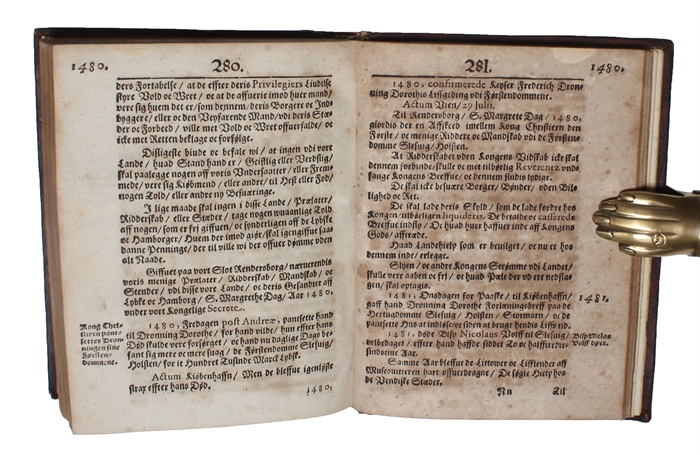 1480.
280.
ders Fortabelse / at de effter deris Privilegiers Liudelse
styre Vold oc Wret / oc at de offnerie imod huer mand /
vere sig huem det er / som dennem / deris Borgere oc Ind-
byggere / eller oc den Veyfarende Mand / vdi deris Stæ-
der oc Forbed / ville met Vold oc Wret offuerfalde / oc
icke met Retten beklage oc forfølge.
Disligeste biude oc befale wi / at ingen vdi vort
Lande / huad Stand hand er / Geistlig eller Verdslig /
skal paalegge nogen aff voris Undersaatter / eller Frem-
mede / vere sig Kiøbmend / eller andre / til Hest eller Fod /
nogen Told / eller andre ny Besuæringe.
I lige maade skal ingen i disse Lande / Prælater /
Ridderskab / eller Stæder / tage nogen wuaanlige Told
aff nogen / som er fri giffuen / oc synderligen aff de Lybske
oc Hamborger / Huem der imod giør / skal igengiffue saa-
danne Penninge / der til ville wi der offuer dømme vden
ald Naade.
Giffuet paa vort Slot Rendersborg / nærverendis
voris menige Prælater / Ridderskab / Mandskab / oc
Stender / vdi disse vort Lande / oc deris Gesandter aff
Lybke oc Hamborg / S. Margrethe Dag / Aar 1480,
vnder vort Kongelige Secrete.
Kong Chri-
stiern pant-
setter Dron-
ningen sine
Førsten-
domme.
1480, Fredagen post Andreæ, pantsette hand
til Dronning Dorothe / for hand vilde / hun effter hans
Død skulde vere forsørget / oc hand nu daglige Dags be-
fant sig mere oc mere suag / de Førstendomme Slesuig /
Holsten / for it Hundret Tusinde Marck Lybsk.
Actum Kiøbenhaffn / Men de bleffue igenløste
strax effter hans Død.
1480,
281.
1480.
1480, confirmerede Keyser Frederich Dron-
ning Dorothis Liffgeding vdi Førstendommene.
Actum Vien / 29 Julii.
Til Rendersborg / S. Margrete Dag / 1480,
giordis der en Afskeed imellem Kong Christiern den
Første / oc menige Riddere oc Mandskab vdi de Førsten-
domme Slesuig / Holsten.
At Ridderskabet vden Kongens Vidskab icke skal
dennem forbinde / skulle oc met tilbørlig Reverentz vnd-
fange Kongens Breffue / oc dennem findis lydige.
De skal icke besuære Borger / Bønder / vden Bil-
lighed oc Ret.
De skal lade deris Skyld / som de lade fordre hos
Kongen / tilbørligen liquideris, De betalde oc casserede
Breffue indsly / De huad huer haffuer inde aff Kongens
Gods / afftræde.
Huad Landehielp som er beuilget / oc nu er hos
dennem inde / erlegge.
Slyen / oc andre Kongens Strømme vdi Landet /
skulle vere aaben oc fri / oc huad Pæle der vd ere nedslag-
ne / skal optagis.
1481, Onsdagen for Paaske / til Kiøbenhaffn /
gaff hand Dronning Dorothe Forleningsbreff paa de
Hertugdomme Slesuig / Holsten / Stormarn / oc de
pantsette Hus at indløse / oc siden at bruge hendis Liffs tid.
1481.
1481, døde Bisp Nicolaus Wolff til Slesuig /
velbedaget / effter hand haffde siddet Too oc halfftredie-
sindstiue Aar.
Bisp Niclas
Wolff døer.
Samme Aar bleffue de Littower oc Lifflender aff
Muscouitteren hart offuerdragne / De søgte Hielp hos
de Vendiske Stæder.
Nn
Til